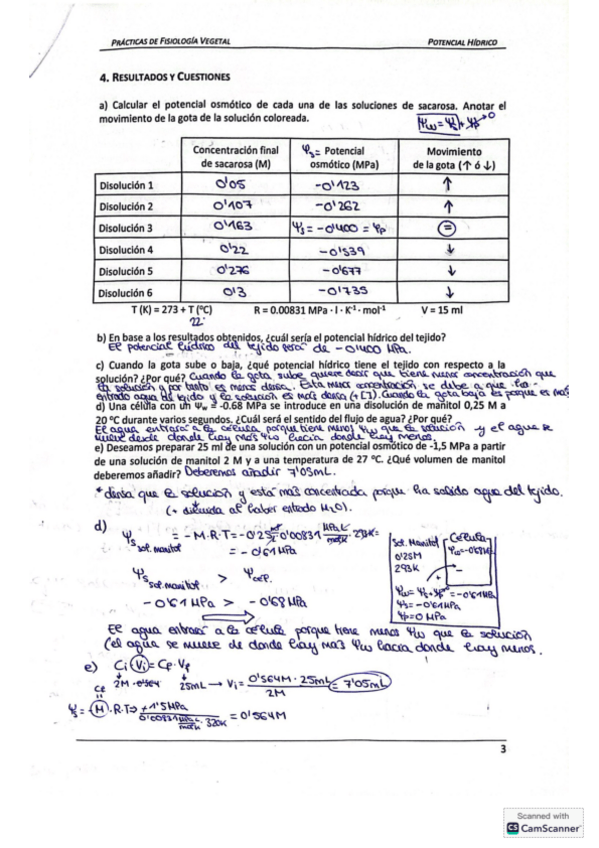 PRÁCTICAS DE FISIOLOGÍA VEGETAL POTENCIAL HÍDRICO
4. RESULTADOS Y CUESTIONES
a) Calcular el potencial osmótico de cada una de las soluciones de sacarosa. Anotar el
movimiento de la gota de la solución coloreada. Ψw = Ψs + Ψp → 0
Concentración final de sacarosa (M) Ψs = Potencial osmótico (MPa) Movimiento de la gota (↑ ó ↓)
Disolución 1 0'05 -0'123 ↑
Disolución 2 0'107 -0'262 ↑
Disolución 3 0'163 Ψs = -0'400 = Ψp =
Disolución 4 0'22 -0'539 ↓
Disolución 5 0'276 -0'677 ↓
Disolución 6 0'3 -0'735 ↓
T (K) = 273 + T (ºC) R = 0.00831 MPa · l · K-1 · mol-1 V = 15 ml
22
b) En base a los resultados obtenidos, ¿cuál sería el potencial hídrico del tejido?
El potencial hídrico del tejido será de -0'400 MPa.
c) Cuando la gota sube o baja, ¿qué potencial hídrico tiene el tejido con respecto a la
solución? ¿Por qué? Cuando la gota sube quiere decir que tiene menor concentración que
la solución y por tanto es menos densa. Esta menor concentración se debe a que ha
entrado agua de tejido y la solución es más densa (+ []). Cuando la gota baja es porque es más
d) Una célula con un Ψw = -0.68 MPa se introduce en una disolución de manitol 0,25 M a
20 ºC durante varios segundos. ¿Cuál será el sentido del flujo de agua? ¿Por qué?
El agua entrará a la célula, porque tiene menos Ψw que la solución y el agua se
mueve desde donde hay más Ψw hacia donde hay menos.
e) Deseamos preparar 25 ml de una solución con un potencial osmótico de -1,5 MPa a partir
de una solución de manitol 2 M y a una temperatura de 27 ºC. ¿Qué volumen de manitol
deberemos añadir? Deberemos añadir 7'05mL.
* densa que la solución y esta más concentrada porque ha salido agua del tejido.
(+ diluida al haber entrado H2O).
d)
Ψs sol. manitol = -M·R·T = -0'25 · 0'00831 · 293K =
= -0'61 MPa
Ψs sol. manitol > Ψcél.
-0'61 MPa > -0'68 MPa
Sol. Manitol Célula
0'25M Ψw = -0'68M
293K
+ -
Ψw = Ψs + Ψp = -0'61MPa
Ψs = -0'61MPa
Ψp = 0 MPa
El agua entrará a la célula porque tiene menos Ψw que la solución
(el agua se mueve de donde hay más Ψw hacia donde hay menos.
e) Ci · Vi = Cf · Vf
2M · 0'564 25mL → Vi = 0'564M · 25mL / 2M = 7'05mL
Cf
Ψs = M · R · T ⇒ +1'5MPa / 0'00831 · 320K = 0'564M
3
Scanned with
CS CamScanner